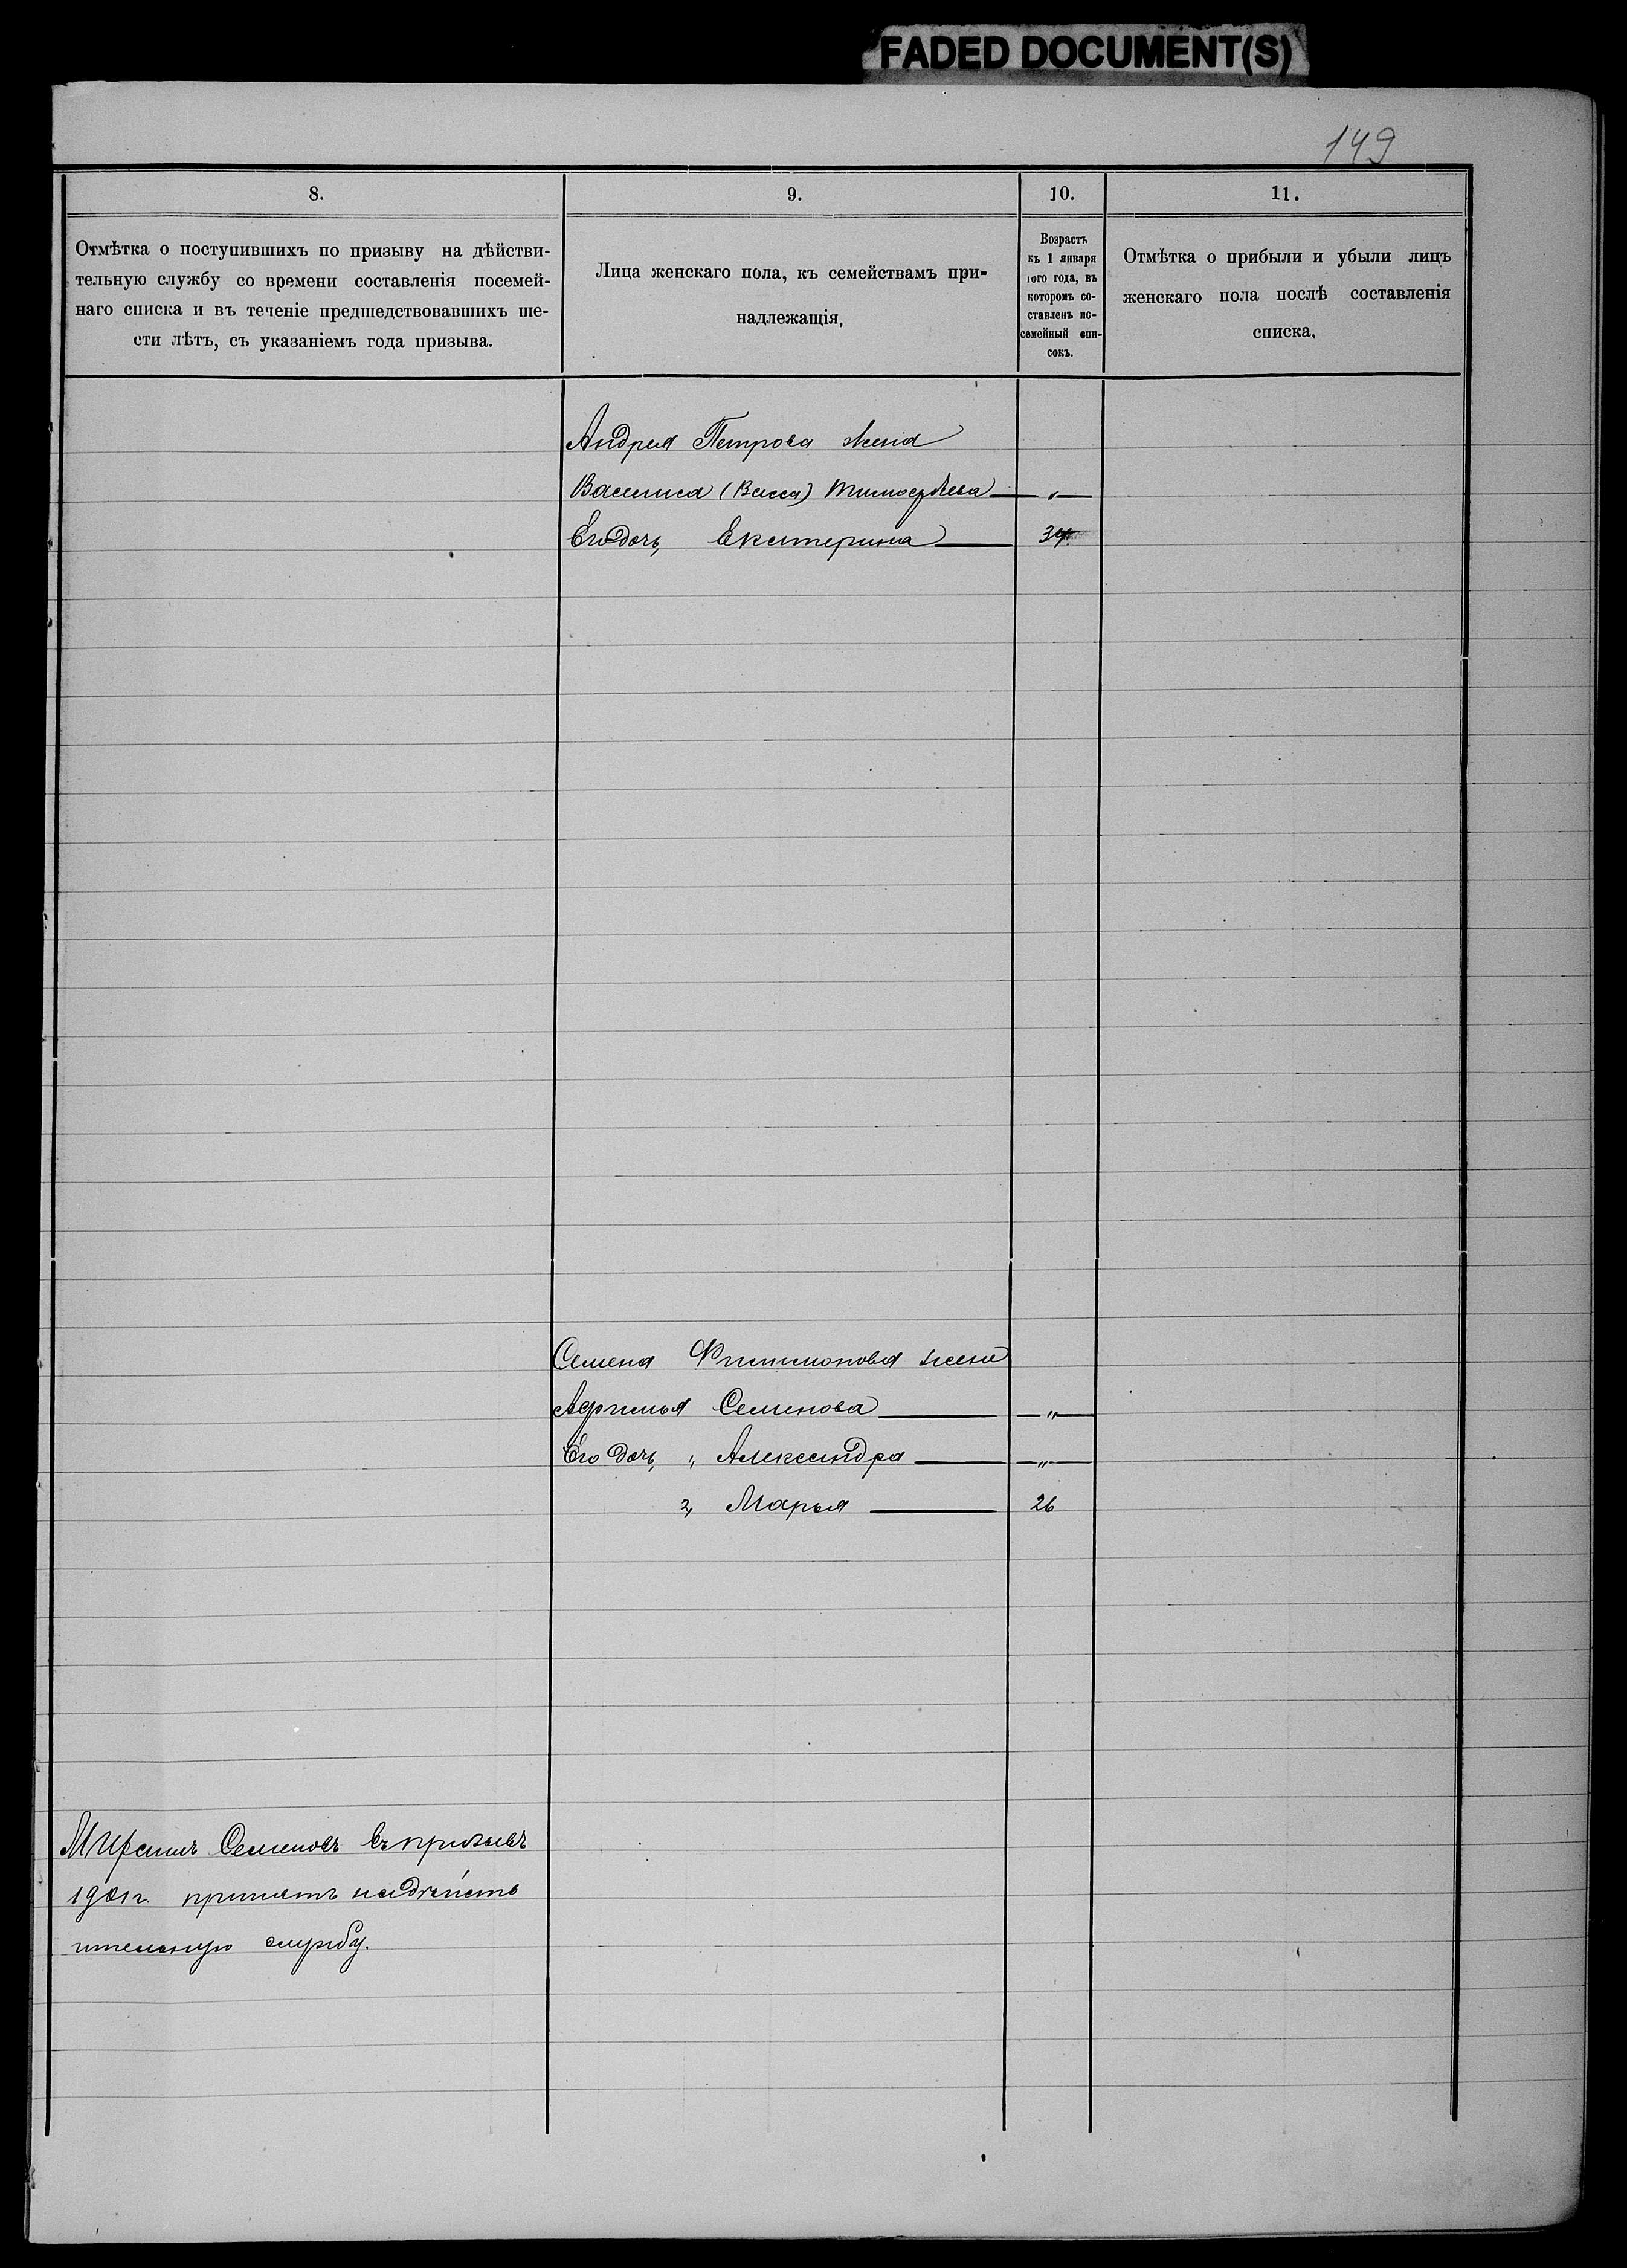 FADED DOCUMENT(S)
149
8.
Отмѣтка о поступившихъ по призыву на дѣйстви-
тельную службу со времени составленія посемей-
наго списка и въ теченіе предшедствовавшихъ ше-
сти лѣтъ, съ указаніемъ года призыва.
9.
Лица женскаго пола, къ семействамъ при-
надлежащія,
10.
Возрастъ
къ 1 января
того года, въ
которомъ со-
ставленъ по-
семейный спи-
сокъ.
11.
Отмѣтка о прибыли и убыли лицъ
женскаго пола послѣ составленія
списка.
Андрея Петрова жена
Василиса (Васса) Тимофѣева — „ —
Его дочь, Екатерина — 34
Семена Филимонова жена
Афимья Семенова — „ —
Его дочь, „ Александра — „ —
2, Марья — 26
Семеновъ въ призывъ
1901 г. принятъ на дѣйств
ительную службу.